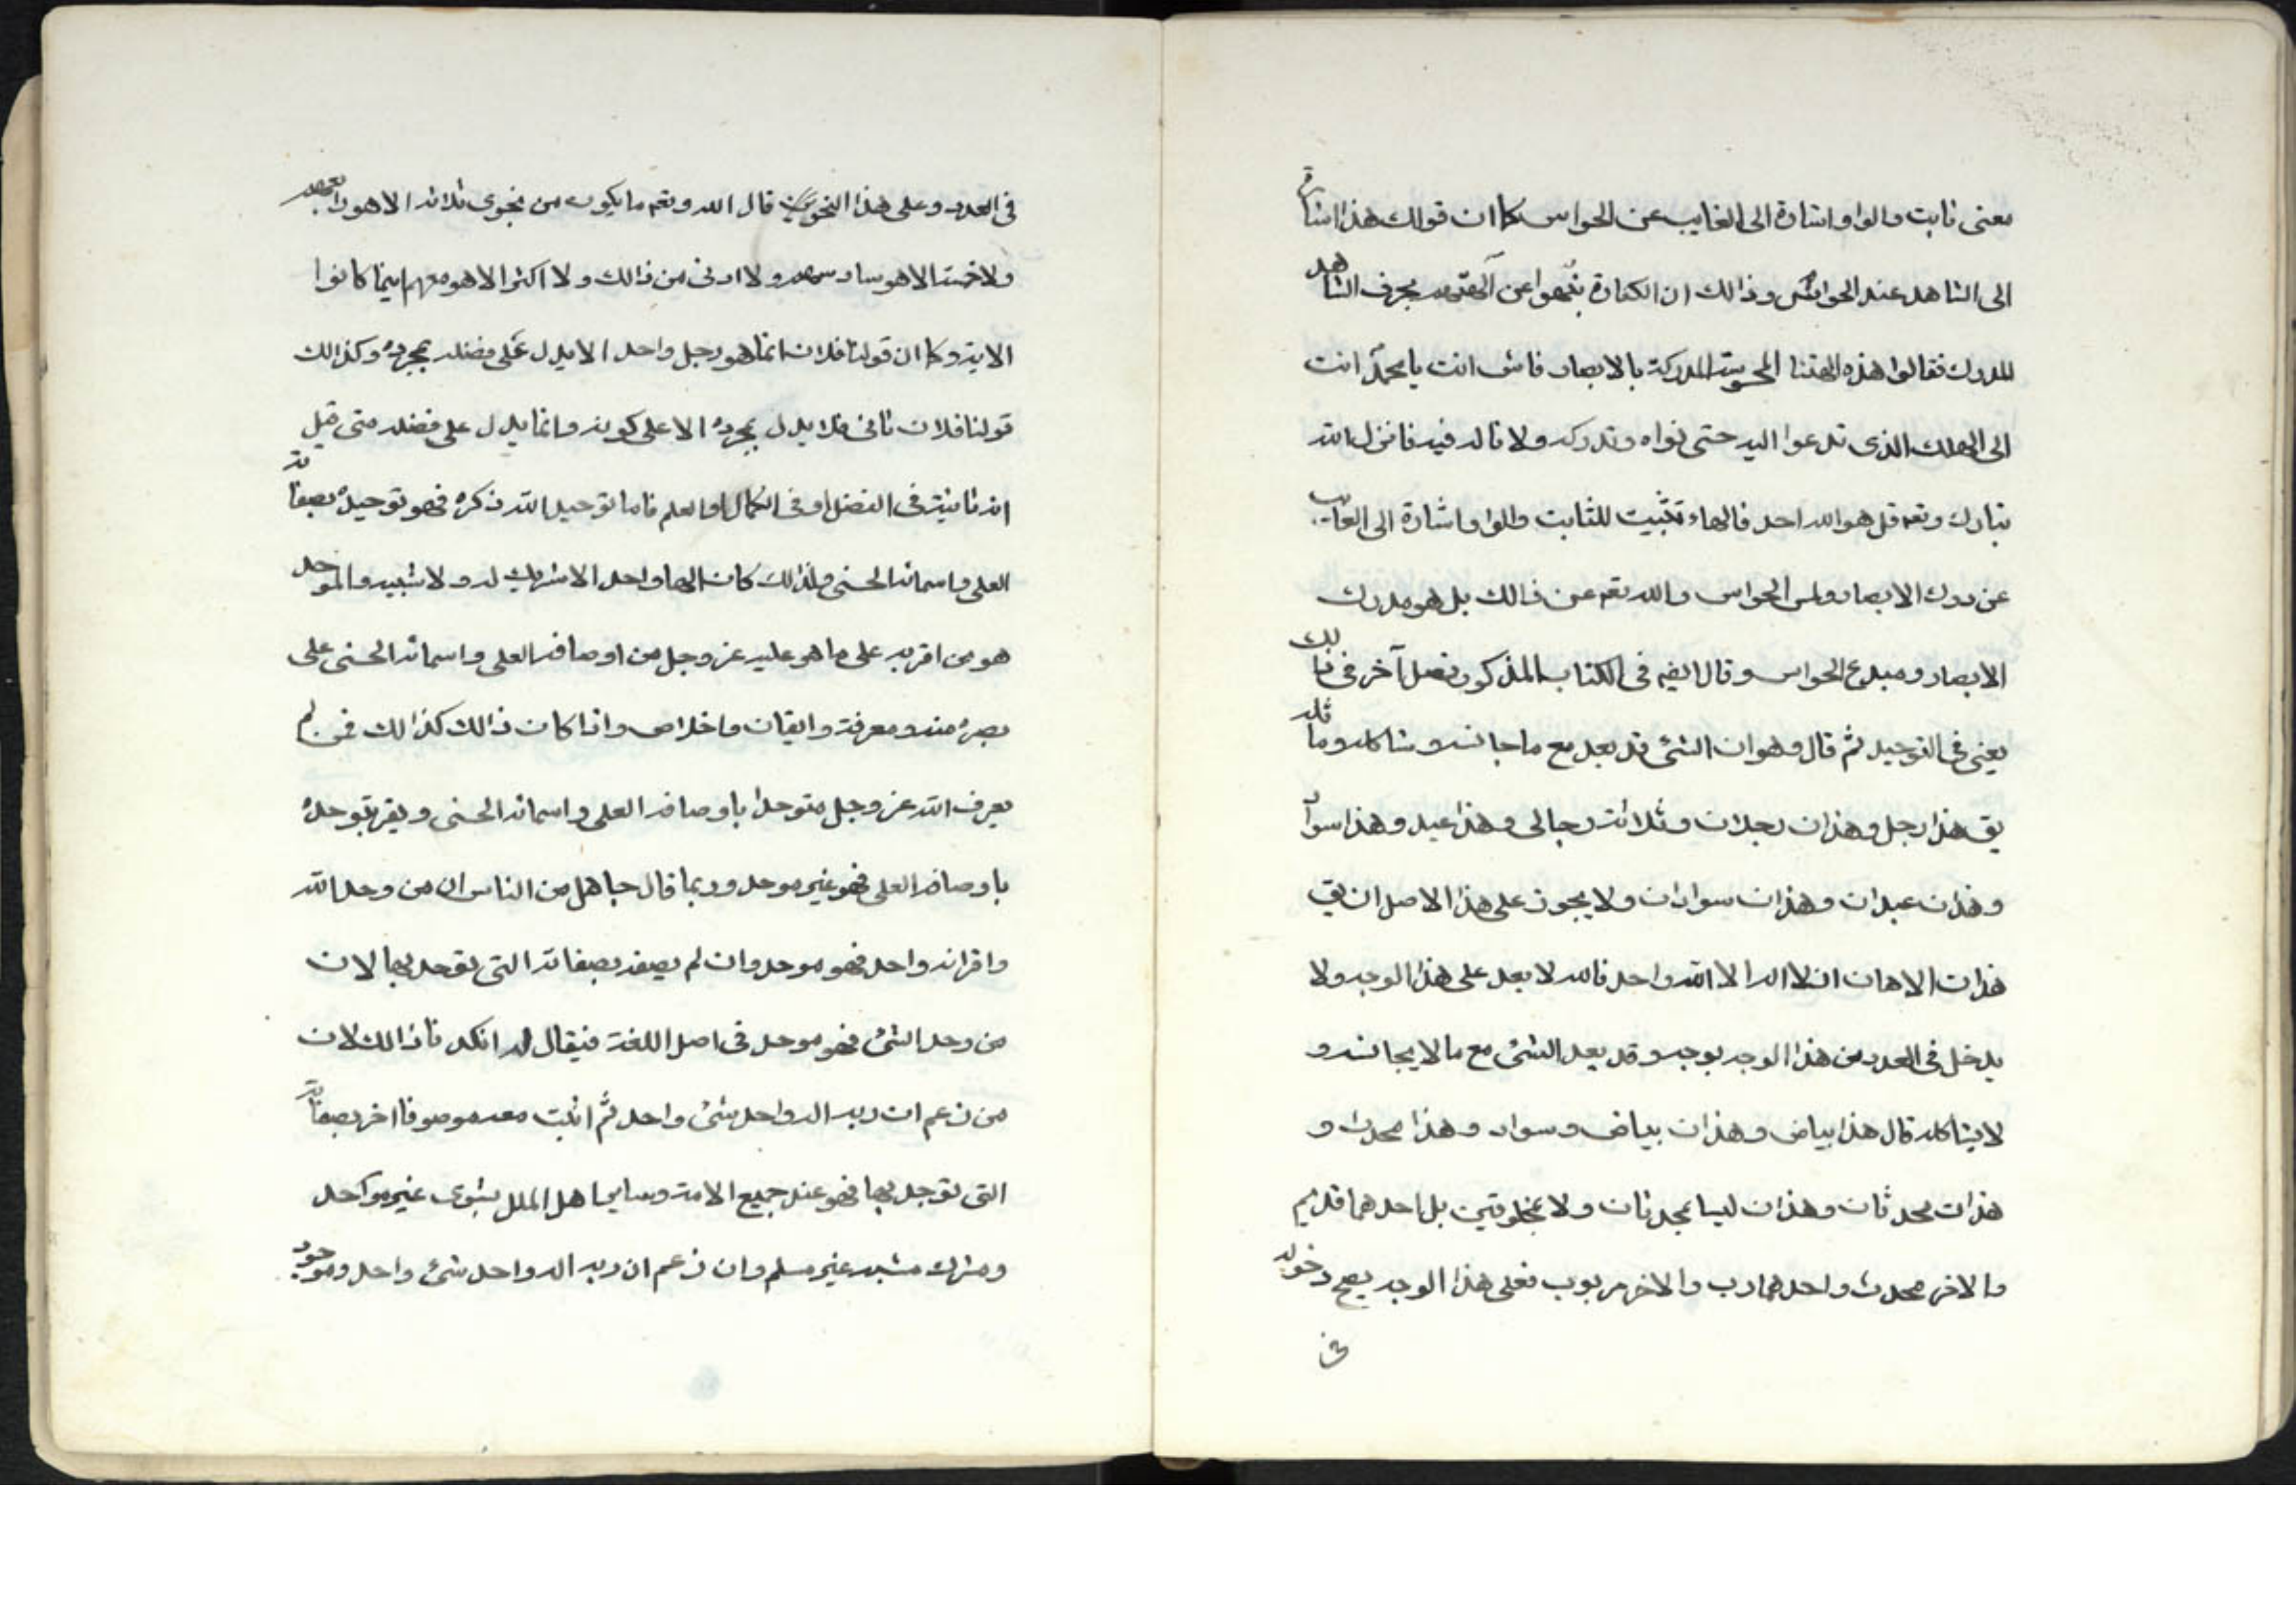 معنى ثابت والواو اشارة الى الغايب عن الحواس كما ان قولك هذا اشارة
الى الشاهد عند الحواس وذالك ان الكفارة نبهوا عن آلهتهم بحرف الشاهد
المدرك فقالوا هذه الهتنا المحسوسة المدركة بالابصار فاشر انت يا محمد انت
الى الهك الذى تدعوا اليه حتى نراه وندركه ولا ناله فيه فانزل الله
تبارك وتعه قل هو الله احد فالهاء تثبيت للثابت والواو اشارة الى الغايب
عن درك الابصار ولمس الحواس والله تعه عن ذالك بل هو مدرك
الابصار ومبدع الحواس وقال ايضه فى الكتاب المذكور فصل آخر فى ذالك
يعنى فى التوحيد ثم قال وهو ان الشئ قد يعد مع ما جانسه وشاكله وماثله
يق هذا رجل وهذان رجلان وثلاثة رجالى وهذا عبد وهذا سواد
وهذان عبدان وهذان سوادان ولا يجوز على هذا الاصل ان يق
هذان الاهان اذ لا اله الا الله واحد فالله لا يعد على هذا الوجه ولا
يدخل فى العدد من هذا الوجه بوجه وقد يعد الشئ مع ما لا يجانسه و
لا يشاكله قال هذا بياض وهذان بياض وسواد وهذا محدث و
هذان محدثان وهذان ليسا بمحدثان ولا بمخلوقين بل احدهما قديم
والاخر محدث واحدهما رب والاخر مربوب فعلى هذا الوجه يصح دخوله
فى
فى العدد وعلى هذا النحو قال الله وتعه ما يكون من نجوى ثلاثة الا هو رابعهم
ولا خمسة الا هو سادسهم ولا ادنى من ذالك ولا اكثر الا هو معهم اينما كانوا
الاية وكما ان قولنا فلان انما هو رجل واحد الا يدل على فضله بمجرده وكذالك
قولنا فلان ثانى فلا يدل بمجرده الا على كونه وانما يدل على فضله متى قيل
انه ثانيه فى الفضل او فى الكمال او العلم فاما توحيد الله ذكره فهو توحيده بصفاته
العلى واسمائه الحسنى ولذالك كان الها واحد الا شريك له ولا شبيه والموحد
هو من اقر به على ما هو عليه عز وجل من اوصافه العلى واسمائه الحسنى على
بصيرة منه ومعرفة وايقان واخلاص واذا كان ذالك كذالك فمن لم
يعرف الله عز وجل متوحدا باوصافه العلى واسمائه الحسنى ويقر بتوحده
باوصافه العلى فهو غير موحد وربما قال جاهل من الناس ان من وحد الله
واقر انه واحد فهو موحد وان لم يصفه بصفاته التى توحد بها لان
من وحد الشئ فهو موحد فى اصل اللغة فيقال له انكرنا ذالك لان
من زعم ان ربه اله واحد شئ واحد ثم اثبت معه موصوفا اخر بصفاته
التى توحد بها فهو عند جميع الامة وساير اهل الملل ثنوى غير موحد
ومشرك مشبه غير مسلم وان زعم ان ربه اله واحد شئ واحد وموجود